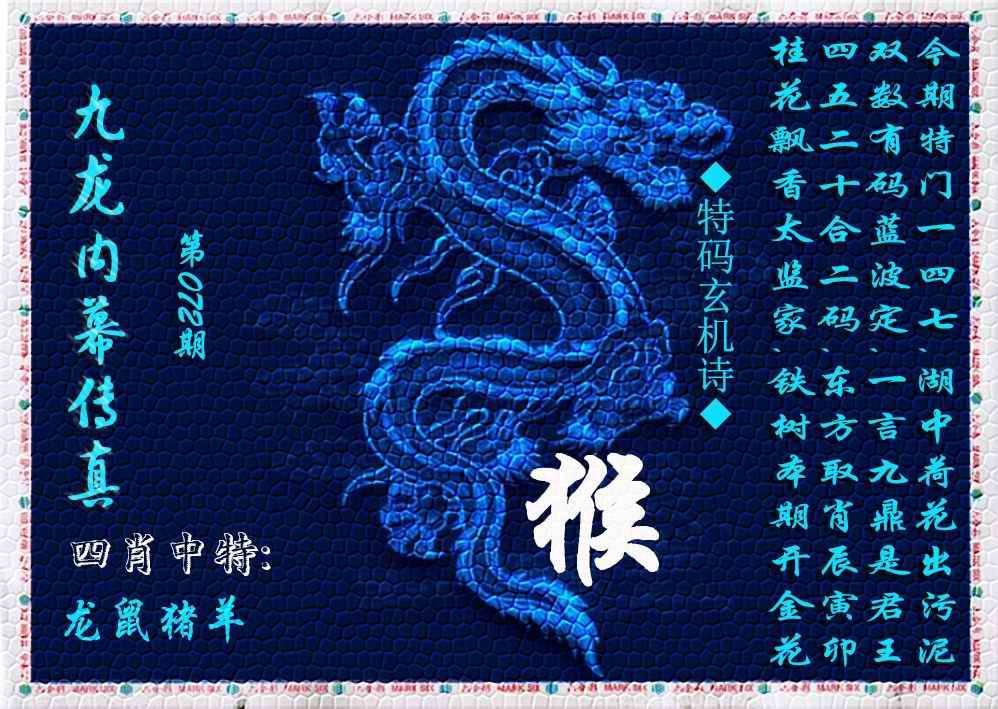 今期特门一四七、湖中荷花出污泥
双数有码蓝波定、一言九鼎是君王
四五二十合二码、东方取肖辰寅卯
桂花飘香太监家、铁树本期开金花
◆特码玄机诗◆
猴
第072期
九龙内幕传真
四肖中特:
龙鼠猪羊
MARK SIX